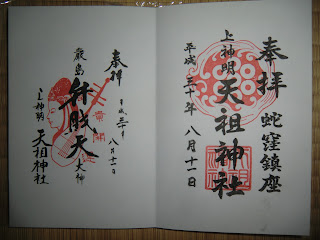 奉拝 蛇窪鎮座
上神明 天祖神社
平成三十年 八月十一日
奉拝
平成三十年
八月十一日
厳島 弁財天 大神
上神明 天祖神社